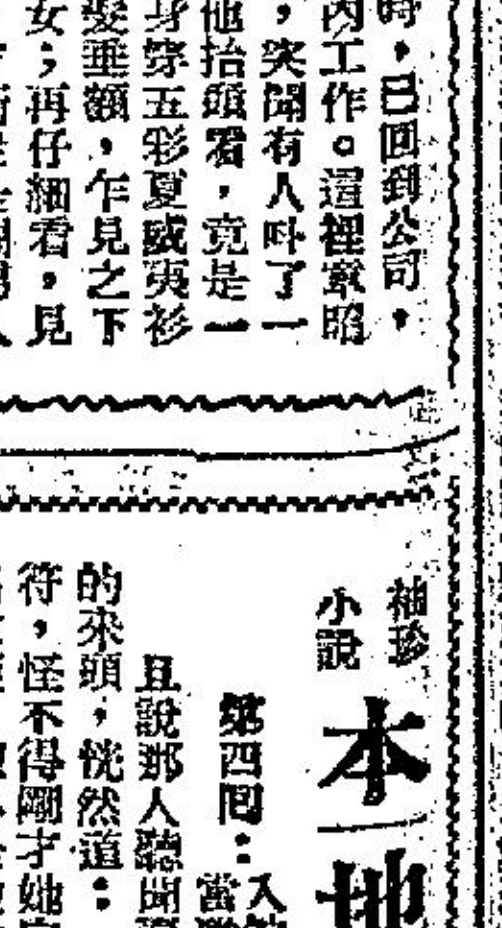 時，已回到公司，
內工作。這裡家昭
，突聞有人呌了一
他抬頭看，竟是一
身穿五彩夏威夷衫
髮垂額，乍見之下
女；再仔細看，見
袖珍
小說
本地
第四回：
入
當
且說那人聽聞
的來頭，恍然道：
符，怪不得剛才她